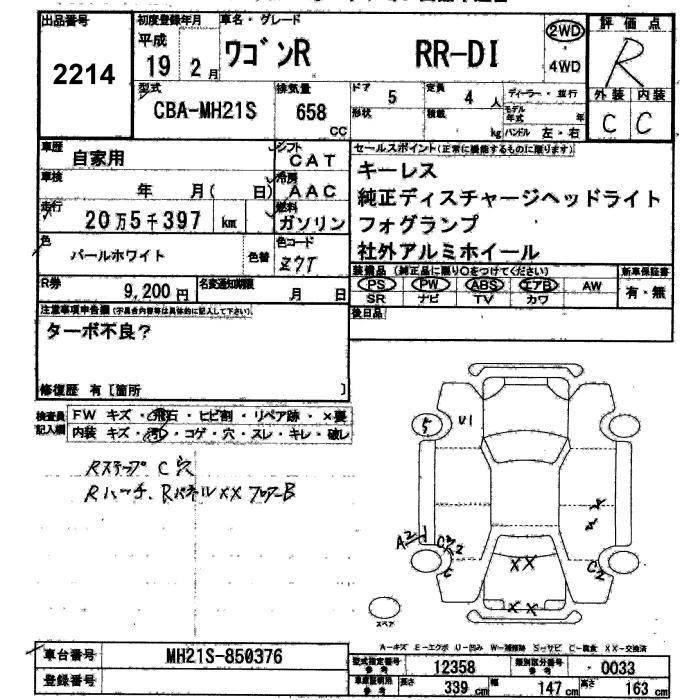 出品番号
2214
初度登録年月
平成
19 2月
車名・グレード
ワゴンR RR-DI
2WD
・
4WD
評価点
R
外装 内装
C C
型式
CBA-MH21S
排気量
658
CC
ドア
5
定員
4 人
形状
積載
kg
ディーラー・並行
モデル年式 年
ハンドル 左・右
車歴
自家用
シフト
CAT
車検
年 月( 日)
冷房
AAC
走行
20万5千397 km
燃料
ガソリン
色
パールホワイト
色替
色コード
Z7T
セールスポイント(正常に機能するものに限ります)
キーレス
純正ディスチャージヘッドライト
フォグランプ
社外アルミホイール
装備品 (純正品に限り○をつけてください)
PS PW ABS エアB AW
SR ナビ TV カワ
新車保証書
有・無
R券
9,200円
名変通知期限
月 日
後日品
注意事項申告欄(不具合内容等は具体的に記入して下さい)
ターボ不良?
修復歴 有 [箇所 ]
検査員記入欄
FW キズ・飛石・ヒビ割・リペア跡・×要
内装 キズ・汚れ・コゲ・穴・スレ・キレ・破レ
Rステップ C 穴
Rハッチ、Rパネル××フロアーB
U1
A2
C2
C
××
××
C2
スペア
A-キズ E-エクボ U-凹み W-補修跡 S-サビ C-腐食 XX-交換済
車台番号
MH21S-850376
登録番号
型式指定番号 参考
12358
類別区分番号 参考
0033
車庫証明用 参考
長さ 339cm 幅 147cm 高さ 163cm